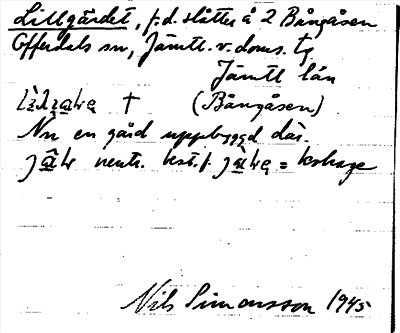 Lillgärdet, f.d. slåtter å 2 Bångåsen
Offerdals sn, Jämtl. v. doms. tg
Jämtl län
† (Bångåsen)
Nu en gård uppbyggd där.
neutr. best. f. =
Nils Simonsson 1945